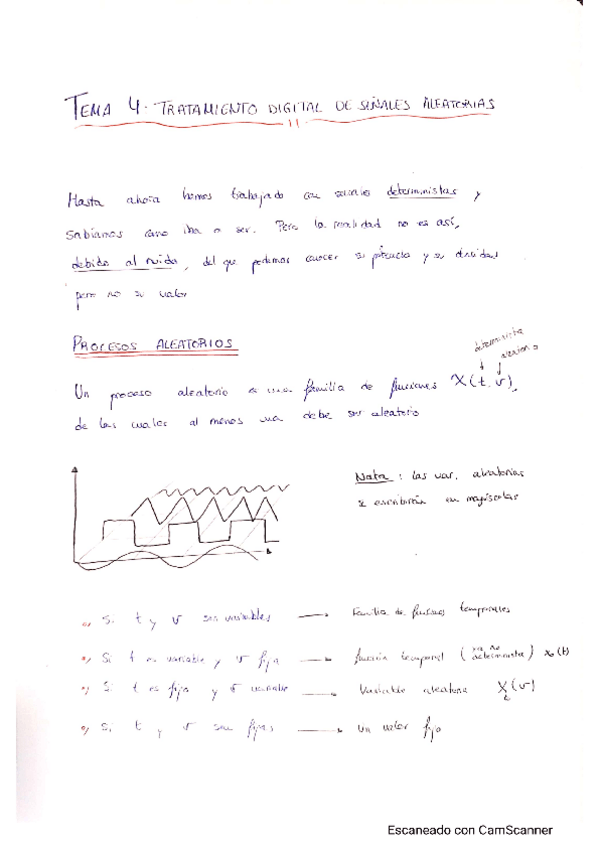 TEMA 4. TRATAMIENTO DIGITAL DE SEÑALES ALEATORIAS
Hasta ahora hemos trabajado con señales deterministas y
sabíamos como iba a ser. Pero la realidad no es así,
debido al ruido, del que podemos conocer su potencia y su densidad
pero no su valor
PROCESOS ALEATORIOS
determinista
aleatorio
Un proceso aleatorio es una familia de funciones X(t, v),
de las cuales al menos una debe ser aleatorio
Nota: las var. aleatorias
se escribirán en mayúsculas
Si t y v son variables → Familia de funciones temporales
Si t es variable y v fija → función temporal (ya no determinista) x₀(t)
Si t es fija y v variable → Variable aleatoria X (v)
Si t y v son fijas → Un valor fijo
Escaneado con CamScanner